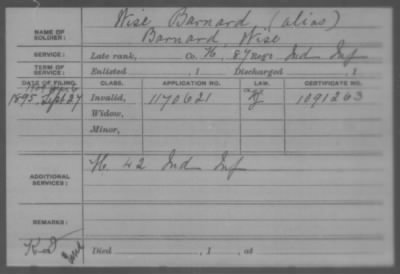 NAME OF SOLDIER: Wise Barnard (alias)
Barnard, Wise
SERVICE: Late rank, Co. H, 87 Reg't Ind Inf
TERM OF SERVICE: Enlisted , 1 Discharged , 1
DATE OF FILING. CLASS. APPLICATION NO. LAW. CERTIFICATE NO.
1895, Sept 27 Invalid, 1170621 1091263
Widow,
Minor,
ADDITIONAL SERVICES: H. 42 Ind Inf
REMARKS:
Died , 1 , at